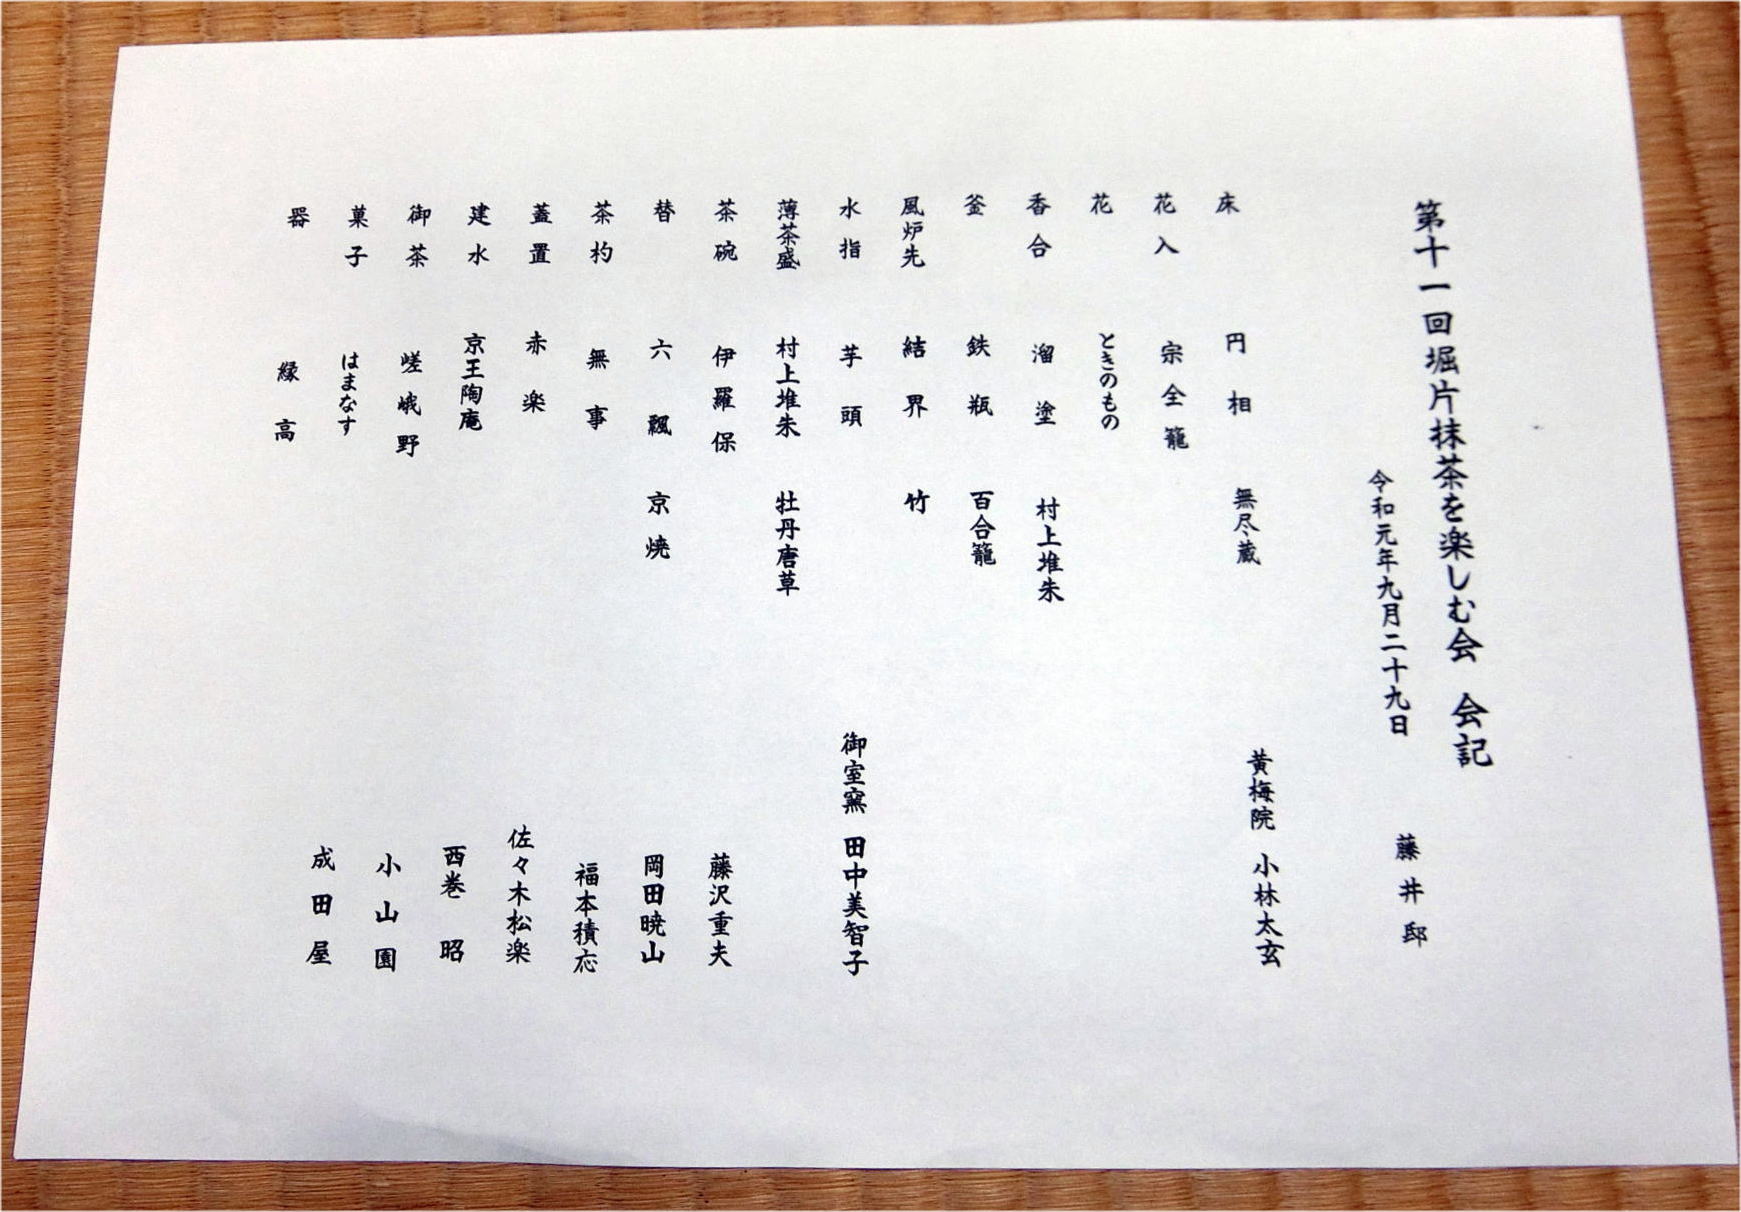 第十一回堀片抹茶を楽しむ会 会記
令和元年九月二十九日 藤井邸
床 円相 無尽蔵 黄梅院 小林太玄
花入 宗全籠
花 ときのもの
香合 溜塗 村上堆朱
釜 鉄瓶 百合籠
風炉先 結界 竹
水指 芋頭 御室窯 田中美智子
薄茶盛 村上堆朱 牡丹唐草
茶碗 伊羅保 藤沢重夫
替 六瓢 京焼 岡田暁山
茶杓 無事 福本積応
蓋置 赤楽 佐々木松楽
建水 京王陶庵 西巻 昭
御茶 嵯峨野 小山園
菓子 はまなす 成田屋
器 縁高